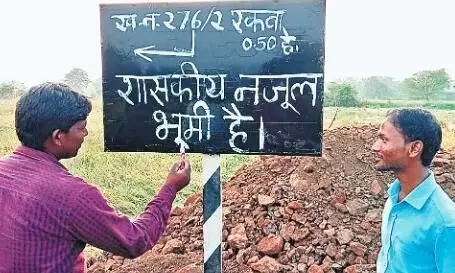 ख.न.276/2 रकवा
0.50 हे.
शासकीय नजूल
भूमी है।